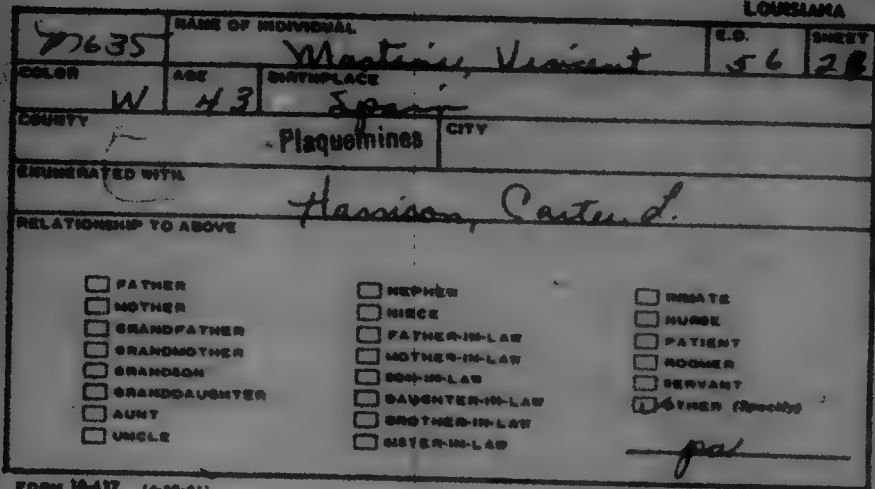 LOUISIANA
M635 NAME OF INDIVIDUAL E.D. SHEET
Martinie, Vincent 56 2
COLOR AGE BIRTHPLACE
W 43 Spain
COUNTY Plaquemines CITY
ENUMERATED WITH
Harrison, Carter L.
RELATIONSHIP TO ABOVE
FATHER
MOTHER
GRANDFATHER
GRANDMOTHER
GRANDSON
GRANDDAUGHTER
AUNT
UNCLE
NEPHEW
NIECE
FATHER-IN-LAW
MOTHER-IN-LAW
SON-IN-LAW
DAUGHTER-IN-LAW
BROTHER-IN-LAW
SISTER-IN-LAW
INMATE
NURSE
PATIENT
ROOMER
SERVANT
OTHER (Specify)
FORM